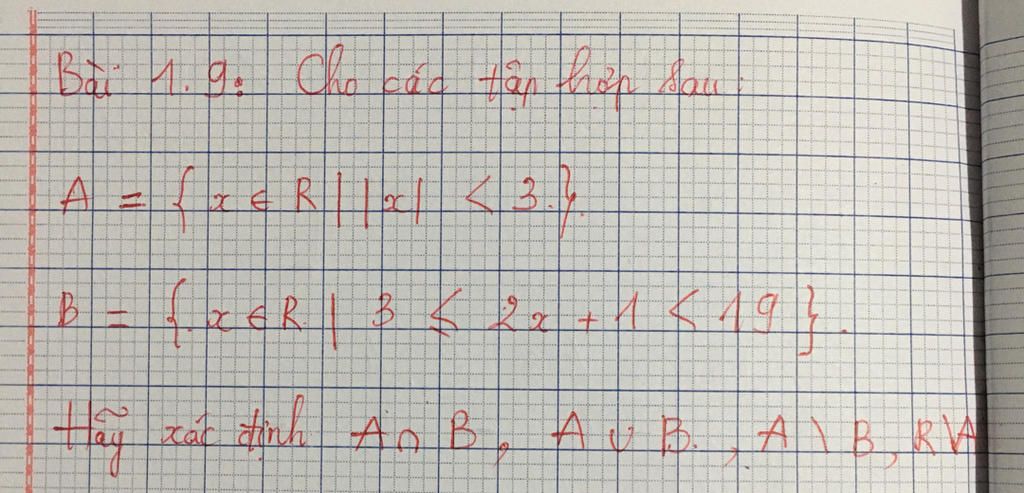 Bài 1.9: Cho các tập hợp sau:
A = { x ∈ R | |x| < 3.}.
B = {. x ∈ R. | 3 ≤ 2x + 1 < 19 }.
Hãy xác định A ∩ B, A ∪ B., A \ B, R\A